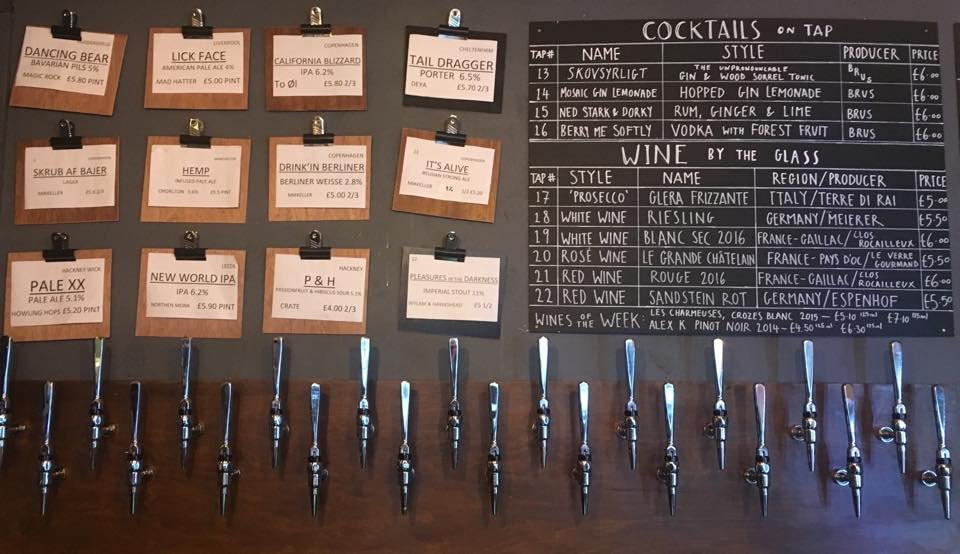 DANCING BEAR
BAVARIAN PILS 5%
MAGIC ROCK £5.80 PINT
LIVERPOOL
LICK FACE
AMERICAN PALE ALE 4%
MAD HATTER £5.00 PINT
COPENHAGEN
CALIFORNIA BLIZZARD
IPA 6.2%
To Øl £5.80 2/3
CHELTENHAM
TAIL DRAGGER
PORTER 6.5%
DEYA £5.70 2/3
COPENHAGEN
SKRUB AF BAJER
LAGER
MIKKELLER
HEMP
INFUSED PALE ALE
CHORLTON 5.6% £5.5 PINT
COPENHAGEN
DRINK'IN BERLINER
BERLINER WEISSE 2.8%
MIKKELLER £5.00 2/3
COPENHAGEN
IT'S ALIVE
BELGIAN STRONG ALE
MIKKELLER
HACKNEY WICK
PALE XX
PALE ALE 5.1%
HOWLING HOPS £5.20 PINT
LEEDS
NEW WORLD IPA
IPA 6.2%
NORTHEN MONK £5.90 PINT
HACKNEY
P & H
PASSIONFRUIT & HIBISCUS SOUR 5.1%
CRATE £4.00 2/3
12
PLEASURES IN THE DARKNESS
IMPERIAL STOUT 11%
WYLAM & HAWKSHEAD £5 1/2
COCKTAILS ON TAP
TAP# NAME STYLE PRODUCER PRICE
13 SKOVSYRLIGT THE UNPRONOUNCABLE GIN & WOOD SORREL TONIC BRUS £6.00
14 MOSAIC GIN LEMONADE HOPPED GIN LEMONADE BRUS £6.00
15 NED STARK & DORKY RUM, GINGER & LIME BRUS £6.00
16 BERRY ME SOFTLY VODKA WITH FOREST FRUIT BRUS £6.00
WINE BY THE GLASS
TAP# STYLE NAME REGION/PRODUCER PRICE
17 'PROSECCO' GLERA FRIZZANTE ITALY/TERRE DI RAI £5.00
18 WHITE WINE RIESLING GERMANY/MEIERER £5.50
19 WHITE WINE BLANC SEC 2016 FRANCE-GAILLAC/CLOS ROCAILLEUX £6.00
20 ROSÉ WINE LE GRANDE CHÂTELAIN FRANCE-PAYS D'OC/LE VERRE GOURMAND £5.50
21 RED WINE ROUGE 2016 FRANCE-GAILLAC/CLOS ROCAILLEUX £6.00
22 RED WINE SANDSTEIN ROT GERMANY/ESPENHOF £5.50
WINES OF THE WEEK: LES CHARMEUSES, CROZES BLANC 2015 - £5.10 125ml £7.10 175ml
ALEX K PINOT NOIR 2014 - £4.50 125ml £6.30 175ml